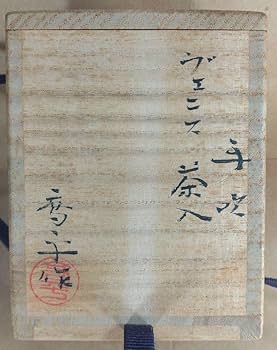 手吹
ヴェニス
茶入
喬平作